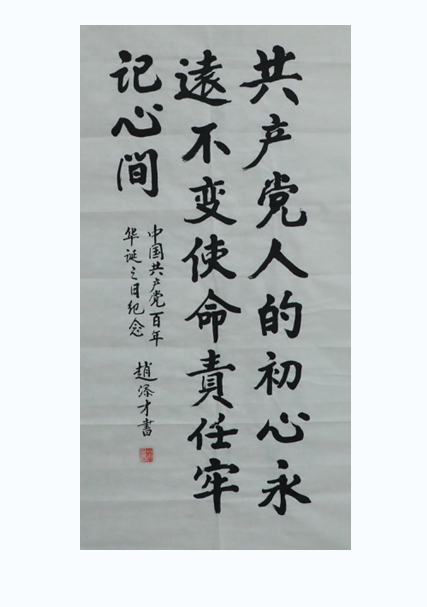 共产党人的初心永
遠不变使命責任牢
记心间
中国共产党百年
华诞之日纪念
趙涤才書